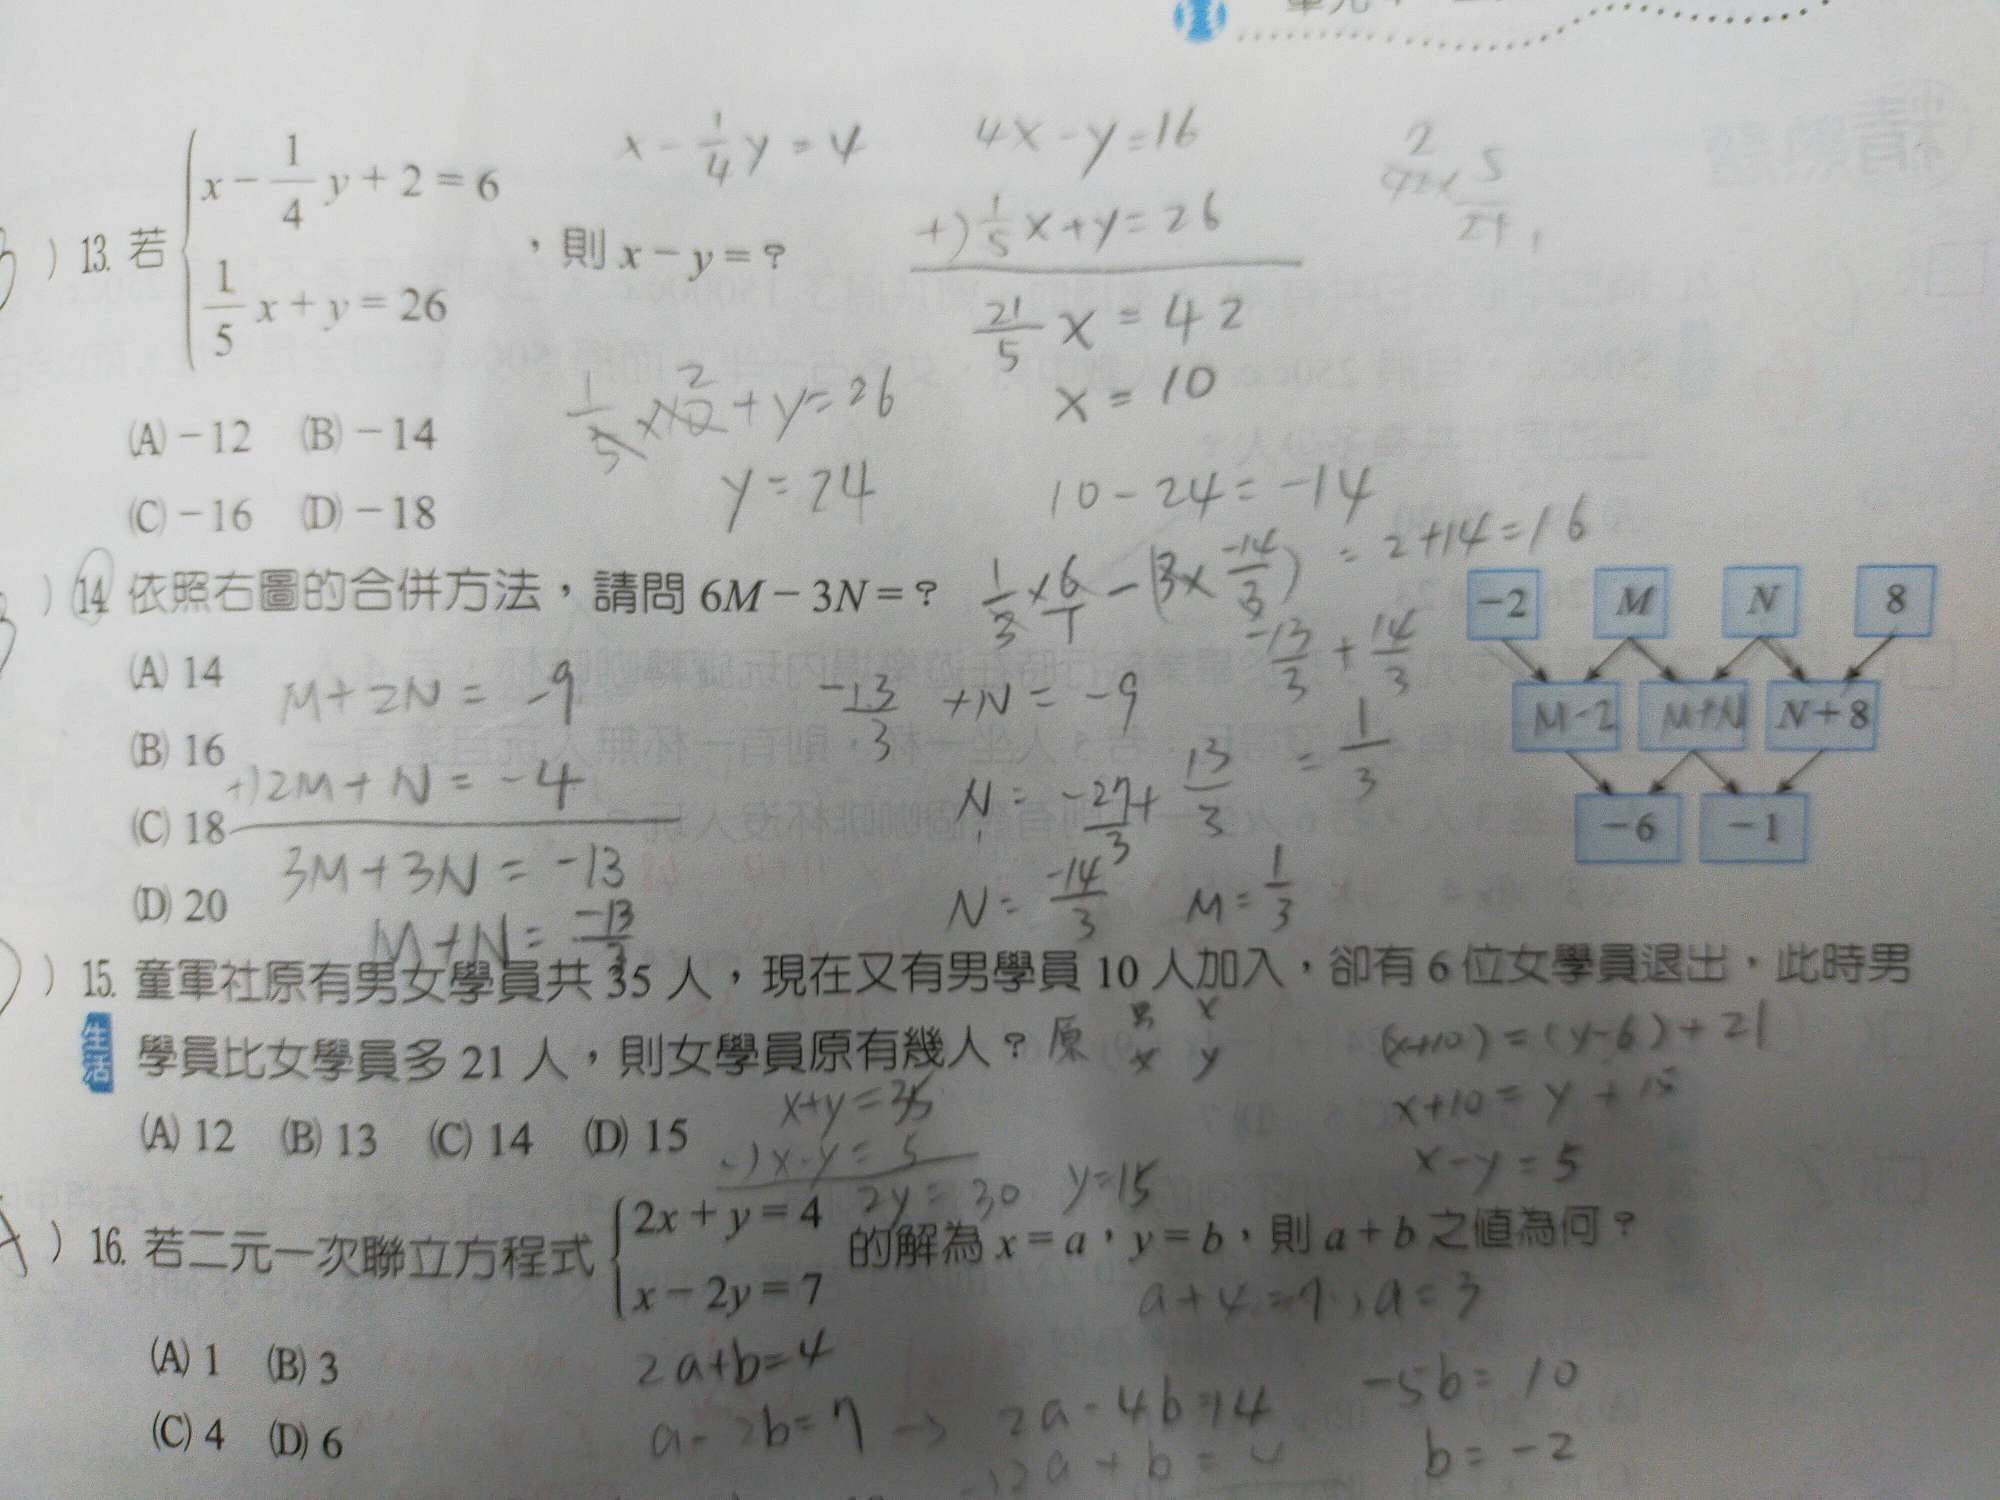 x - 1/4 y = 4
4x - y = 16
13. 若 { x - 1/4 y + 2 = 6
1/5 x + y = 26 ，則 x - y = ?
+) 1/5 x + y = 26
21/5 x = 42
x = 10
1/5 × 10 2 + y = 26
y = 24
10 - 24 = -14
(A) -12 (B) -14
(C) -16 (D) -18
14. 依照右圖的合併方法，請問 6M - 3N = ?
1/3 × 6/1 - (3 × -14/3) = 2 + 14 = 16
(A) 14
(B) 16
(C) 18
(D) 20
M + 2N = -9
+) 2M + N = -4
3M + 3N = -13
M + N = -13/3
-13/3 + N = -9
N = -27/3 + 13/3
N = -14/3
-13/3 + 14/3
= 1/3
M = 1/3
-2 M N 8
M-2 M+N N+8
-6 -1
15. 童軍社原有男女學員共 35 人，現在又有男學員 10 人加入，卻有 6 位女學員退出，此時男
生活 學員比女學員多 21 人，則女學員原有幾人？
原 男 x
x y
(x+10) = (y-6) + 21
x+10 = y + 15
x - y = 5
(A) 12 (B) 13 (C) 14 (D) 15
x + y = 35
-) x - y = 5
2y = 30 y = 15
16. 若二元一次聯立方程式 { 2x + y = 4
x - 2y = 7 的解為 x = a，y = b，則 a + b 之值為何？
a + 4 = 7, a = 3
(A) 1 (B) 3
(C) 4 (D) 6
2a + b = 4
a - 2b = 7 → 2a - 4b = 14
-) 2a + b = 4
-5b = 10
b = -2